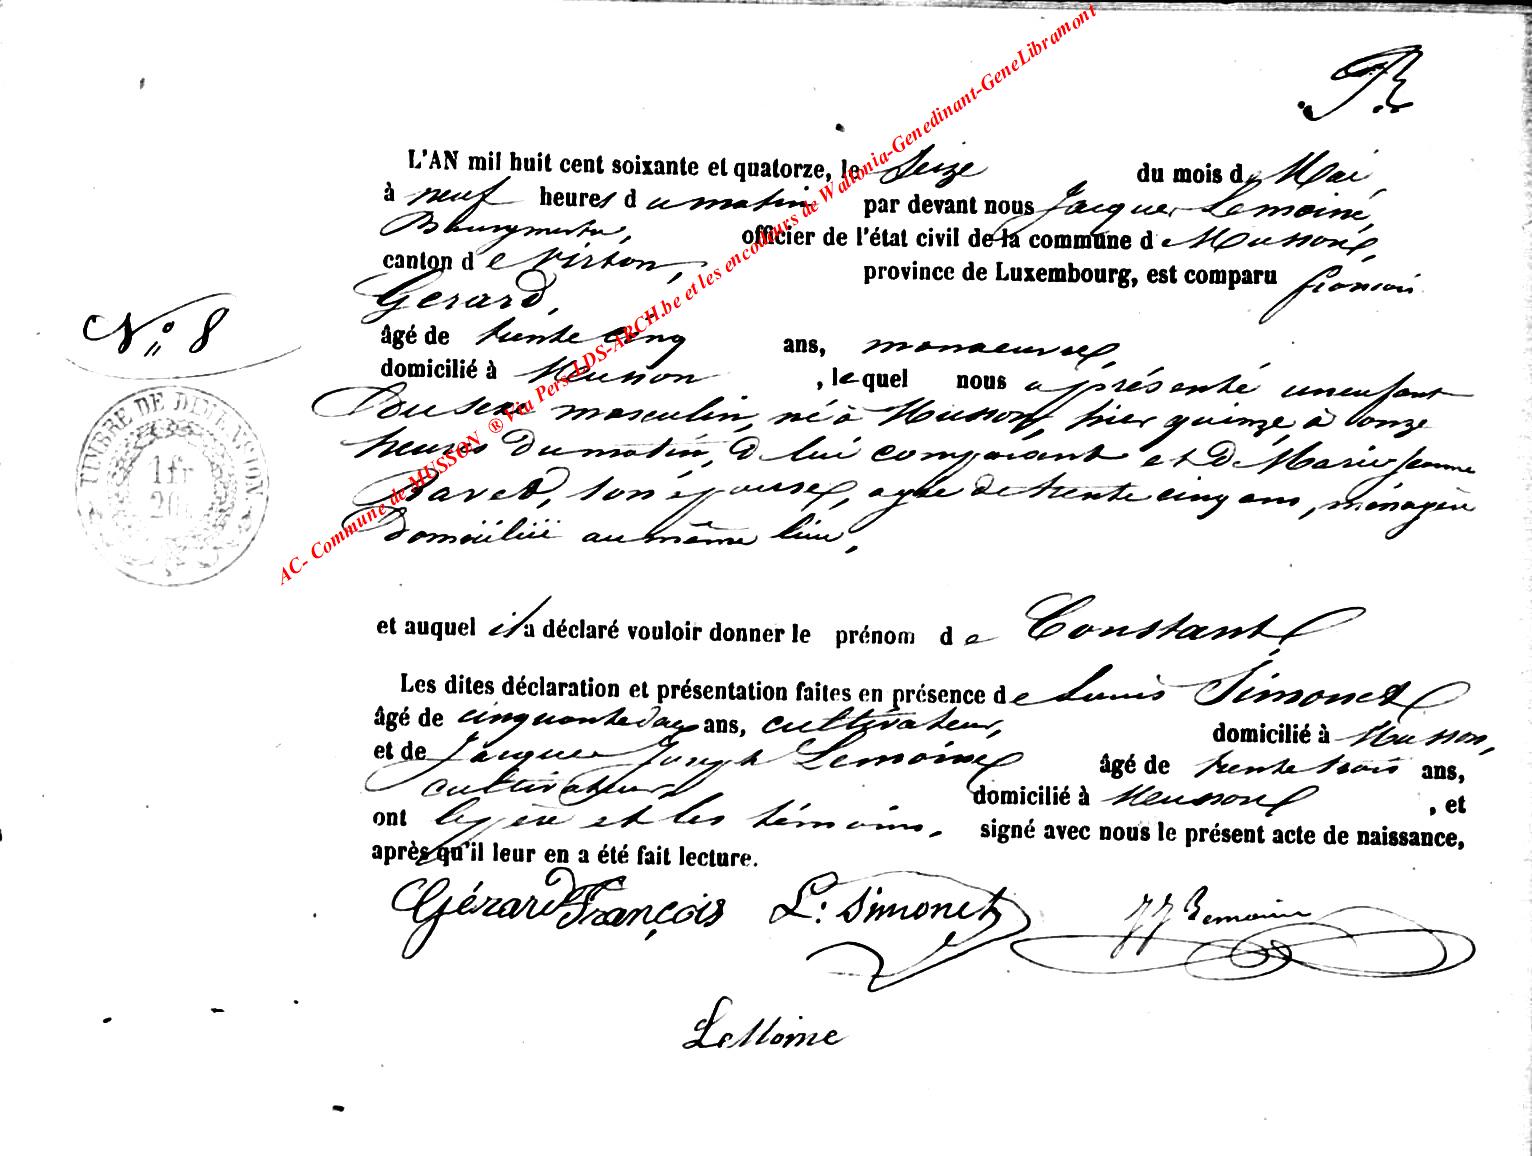 L'AN mil huit cent soixante et quatorze, le Seize du mois de Mai,
à neuf heures du matin par devant nous Jacques Lemoine,
Bourgmestre, officier de l'état civil de la commune de Musson,
canton de Virton, province de Luxembourg, est comparu françois
Gérard,
N° 8
âgé de trente cinq ans, manoeuvre,
domicilié à Musson, lequel nous a présenté un enfant
Du sexe masculin, né à Musson, hier quinze à onze
heures Du matin, de lui comparant et de Marie Jeanne
son épouse, agée de trente cinq ans, ménagère
Domiciliée au même lieu,
TIMBRE DE DIMENSION
1 fr
20
et auquel il a déclaré vouloir donner le prénom de Constant
Les dites déclaration et présentation faites en présence de Louis Simonet
âgé de cinquante ans, cultivateur, domicilié à Musson,
et de Jacques Joseph Lemoine âgé de trente trois ans,
cultivateur, domicilié à Musson, et
ont le père et les témoins, signé avec nous le présent acte de naissance,
après qu'il leur en a été fait lecture.
Gérard François L: Simonet JJ Lemoine
LeMoine
AC- Commune de MUSSON ® Via Pers-LDS-ARCH.be et les encodeurs de Wallonia-Genedinant-GeneLibramont